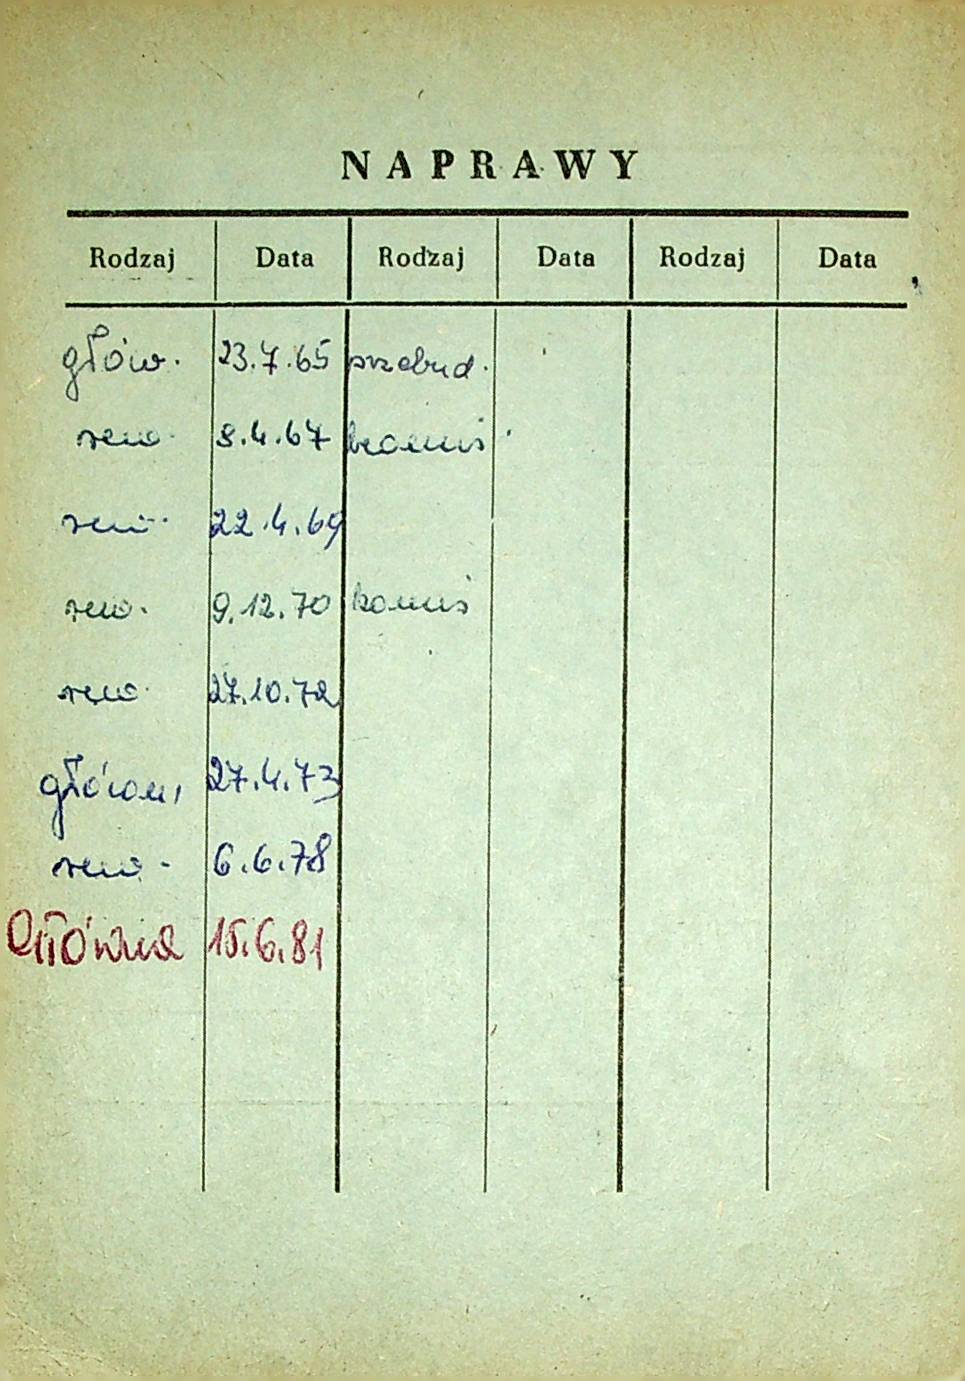 NAPRAWY
Rodzaj Data Rodzaj Data Rodzaj Data
głów. 23.7.65 przebud.
8.4.67
22.4.69
9.12.70 komis
27.10.72
główn, 27.4.73
6.6.78
Główna 15.6.81